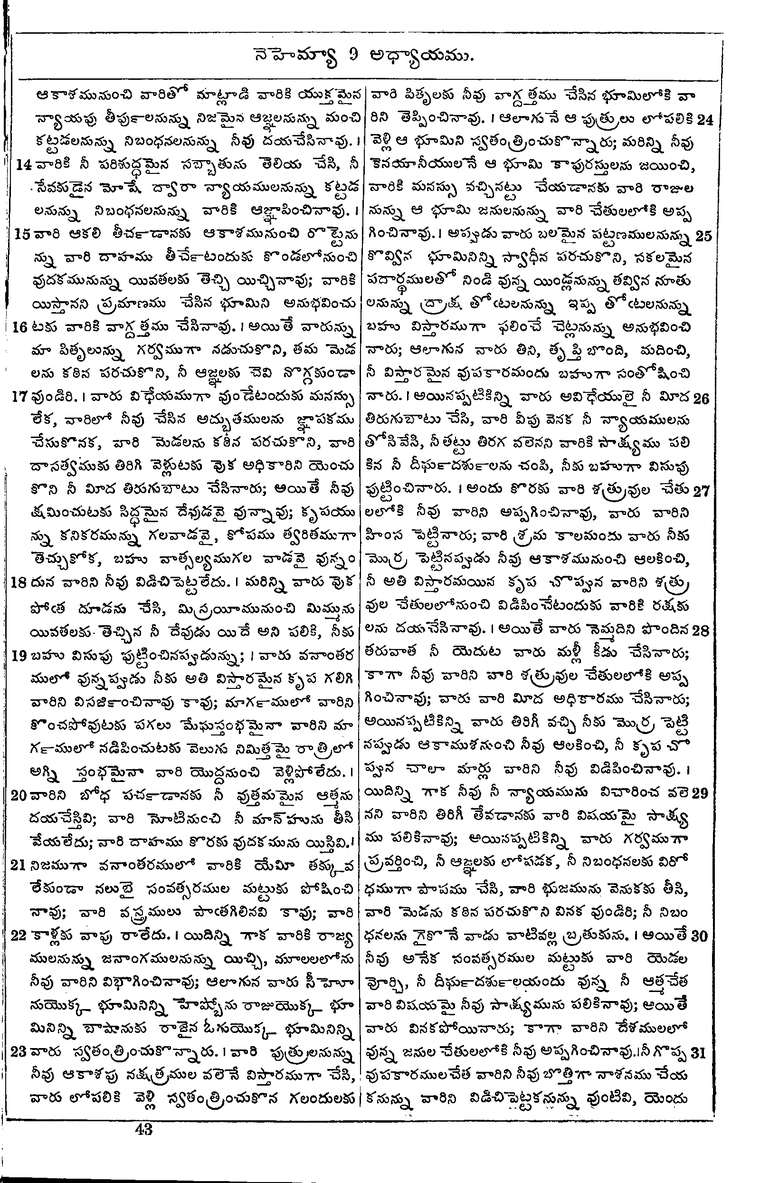 నెహెమ్యా 9 అధ్యాయము.
ఆకాశమునుంచి వారితో మాట్లాడి వారికి యుక్తమైన
న్యాయపు తీర్పులనున్ను నిజమైన ఆజ్ఞలనున్ను మంచి
కట్టడలనున్ను నిబంధనలనున్ను నీవు దయచేసినావు. ।
14 వారికి నీ పరిశుద్ధమైన సబ్బాతును తెలియ చేసి, నీ
సేవకుడైన మోషే ద్వారా న్యాయములనున్ను కట్టడ
లనున్ను నిబంధనలనున్ను వారికి ఆజ్ఞాపించినావు. ।
15 వారి ఆకలి తీర్చడానకు ఆకాశమునుంచి రొట్టెను
న్ను వారి దాహము తీర్చేటందుకు కొండలోనుంచి
వుదకమునున్ను యివతలకు తెచ్చి యిచ్చినావు; వారికి
యిస్తానని ప్రమాణము చేసిన భూమిని అనుభవించు
16 టకు వారికి వాగ్దత్తము చేసినావు. । అయితే వారున్ను
మా పితృలున్ను గర్వముగా నడుచుకొని, తమ మెడ
లను కఠిన పరచుకొని, నీ ఆజ్ఞలకు చెవి నొగ్గకుండా
17 వుండిరి. । వారు విధేయముగా వుండేటందుకు మనస్సు
లేక, వారిలో నీవు చేసిన అద్భుతములను జ్ఞాపకము
చేసుకొనక, వారి మెడలను కఠిన పరచుకొని, వారి
దాసత్వముకు తిరిగి వెళ్లుటకు వొక అధికారిని యెంచు
కొని నీ మీద తిరుగుబాటు చేసినారు; అయితే నీవు
క్షమించుటకు సిద్ధమైన దేవుడవై వున్నావు; కృపయు
న్ను కనికరమున్ను గలవాడవై, కోపము త్వరితముగా
తెచ్చుకోక, బహు వాత్సల్యముగల వాడవై వున్నం
18 దున వారిని నీవు విడిచిపెట్టలేదు. । మరిన్ని వారు వొక
పోత దూడను చేసి, మిస్రయీమునుంచి మిమ్మును
యివతలకు తెచ్చిన నీ దేవుడు యిదే అని పలికి, నీకు
19 బహు విసువు పుట్టించినప్పుడున్ను; । వారు వనాంతర
ములో వున్నప్పుడు నీకు అతి విస్తారమైన కృప గలిగి
వారిని విసర్జించినావు కావు; మార్గములో వారిని
కొంచపోవుటకు పగలు మేఘస్తంభమైనా వారిని మా
ర్గములో నడిపించుటకు వెలుగు నిమిత్తమై రాత్రిలో
అగ్ని స్తంభమైనా వారి యొద్దనుంచి వెళ్లిపోలేదు. ।
20 వారిని బోధ పర్చడానకు నీ వుత్తమమైన ఆత్మను
దయచేస్తివి; వారి నోటినుంచి నీ మాన్‌హును తీసి
వేయలేదు; వారి దాహము కొరకు వుదకమును యిస్తివి. ।
21 నిజముగా వనాంతరములో వారికి యేమీ తక్కువ
లేకుండా నలుభై సంవత్సరముల మట్టుకు పోషించి
నావు; వారి వస్త్రములు పాతగిలినవి కావు; వారి
22 కాళ్లకు వాపు రాలేదు. । యిదిన్ని గాక వారికి రాజ్య
ములనున్ను జనాంగములనున్ను యిచ్చి, మూలలలోను
నీవు వారిని విభాగించినావు; ఆలాగున వారు సీహో
నుయొక్క భూమినిన్ని హెష్బోను రాజుయొక్క భూ
మినిన్ని బాషానుకు రాజైన ఓగుయొక్క భూమినిన్ని
23 వారు స్వతంత్రించుకొన్నారు. । వారి పుత్రులనున్ను
నీవు ఆకాశపు నక్షత్రముల వలెనే విస్తారముగా చేసి,
వారు లోపలికి వెళ్లి స్వతంత్రించుకొన గలందులకు
వారి పితృలకు నీవు వాగ్దత్తము చేసిన భూమిలోకి వా
రిని తెప్పించినావు. । ఆలాగునే ఆ పుత్రులు లోపలికి 24
వెళ్లి ఆ భూమిని స్వతంత్రించుకొన్నారు; మరిన్ని నీవు
కెనయానీయులనే ఆ భూమి కాపురస్తులను జయించి,
వారికి మనస్సు వచ్చినట్టు చేయడానకు వారి రాజుల
నున్ను ఆ భూమి జనులనున్ను వారి చేతులలోకి అప్ప
గించినావు. । అప్పుడు వారు బలమైన పట్టణములనున్ను 25
కొవ్విన భూమినిన్ని స్వాధీన పరచుకొని, సకలమైన
పదార్థములతో నిండి వున్న యిండ్లనున్ను తవ్విన నూతు
లనున్ను ద్రాక్ష తోటలనున్ను ఇప్ప తోటలనున్ను
బహు విస్తారముగా ఫలించే చెట్లనున్ను అనుభవించి
నారు; ఆలాగున వారు తిని, తృప్తిబొంది, మదించి,
నీ విస్తారమైన వుపకారమందు బహుగా సంతోషించి
నారు. । అయినప్పటికిన్ని వారు అవిధేయులై నీ మీద 26
తిరుగుబాటు చేసి, వారి వీపు వెనక నీ న్యాయములను
తోసివేసి, నీ తట్టు తిరగ వలెనని వారికి సాక్ష్యము పలి
కిన నీ దీర్ఘదర్శులను చంపి, నీకు బహుగా విసువు
పుట్టించినారు. । అందు కొరకు వారి శత్రువుల చేతు 27
లలోకి నీవు వారిని అప్పగించినావు, వారు వారిని
హింస పెట్టినారు; వారి శ్రమ కాలమందు వారు నీకు
మొర్ర పెట్టినప్పుడు నీవు ఆకాశమునుంచి ఆలకించి,
నీ అతి విస్తారమయిన కృప చొప్పున వారిని శత్రు
వుల చేతులలోనుంచి విడిపించేటందుకు వారికి రక్షకు
లను దయచేసినావు. । అయితే వారు నెమ్మదిని పొందిన 28
తరువాత నీ యెదుట వారు మళ్లీ కీడు చేసినారు;
కాగా నీవు వారిని వారి శత్రువుల చేతులలోకి అప్ప
గించినావు; వారు వారి మీద అధికారము చేసినారు;
అయినప్పటికిన్ని వారు తిరిగీ వచ్చి నీకు మొర్ర పెట్టి
నప్పుడు ఆకాముశనుంచి నీవు ఆలకించి, నీ కృప చొ
ప్పున చాలా మార్లు వారిని నీవు విడిపించినావు. ।
యిదిన్ని గాక నీవు నీ న్యాయమును విచారించ వలె 29
నని వారిని తిరిగీ తేవడానకు వారి విషయమై సాక్ష్య
ము పలికినావు; అయినప్పటికిన్ని వారు గర్వముగా
ప్రవర్తించి, నీ ఆజ్ఞలకు లోపడక, నీ నిబంధనలకు విరో
ధముగా పాపము చేసి, వారి భుజమును వెనుకకు తీసి,
వారి మెడను కఠిన పరచుకొని వినక వుండిరి; నీ నిబం
ధనలను గైకొనే వాడు వాటివల్ల బ్రతుకును. । అయితే 30
నీవు అనేక సంవత్సరముల మట్టుకు వారి యెడల
వోర్చి, నీ దీర్ఘదర్శులయందు వున్న నీ ఆత్మచేత
వారి విషయమై నీవు సాక్ష్యమును పలికినావు; అయితే
వారు వినకపోయినారు; కాగా వారిని దేశములలో
వున్న జనుల చేతులలోకి నీవు అప్పగించినావు. । నీ గొప్ప 31
వుపకారములచేత వారిని నీవు బొత్తిగా నాశనము చేయ
కనున్ను వారిని విడిచిపెట్టకనున్ను వుంటివి, యెందు
43